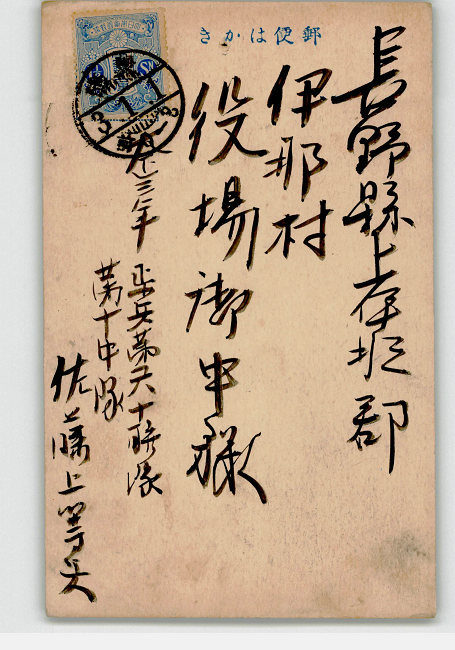 郵便はかき
長野縣上郡
伊那村
役場御中様
三年
歩兵第六十聯隊
第十中隊
佐藤上等兵
3.1.1